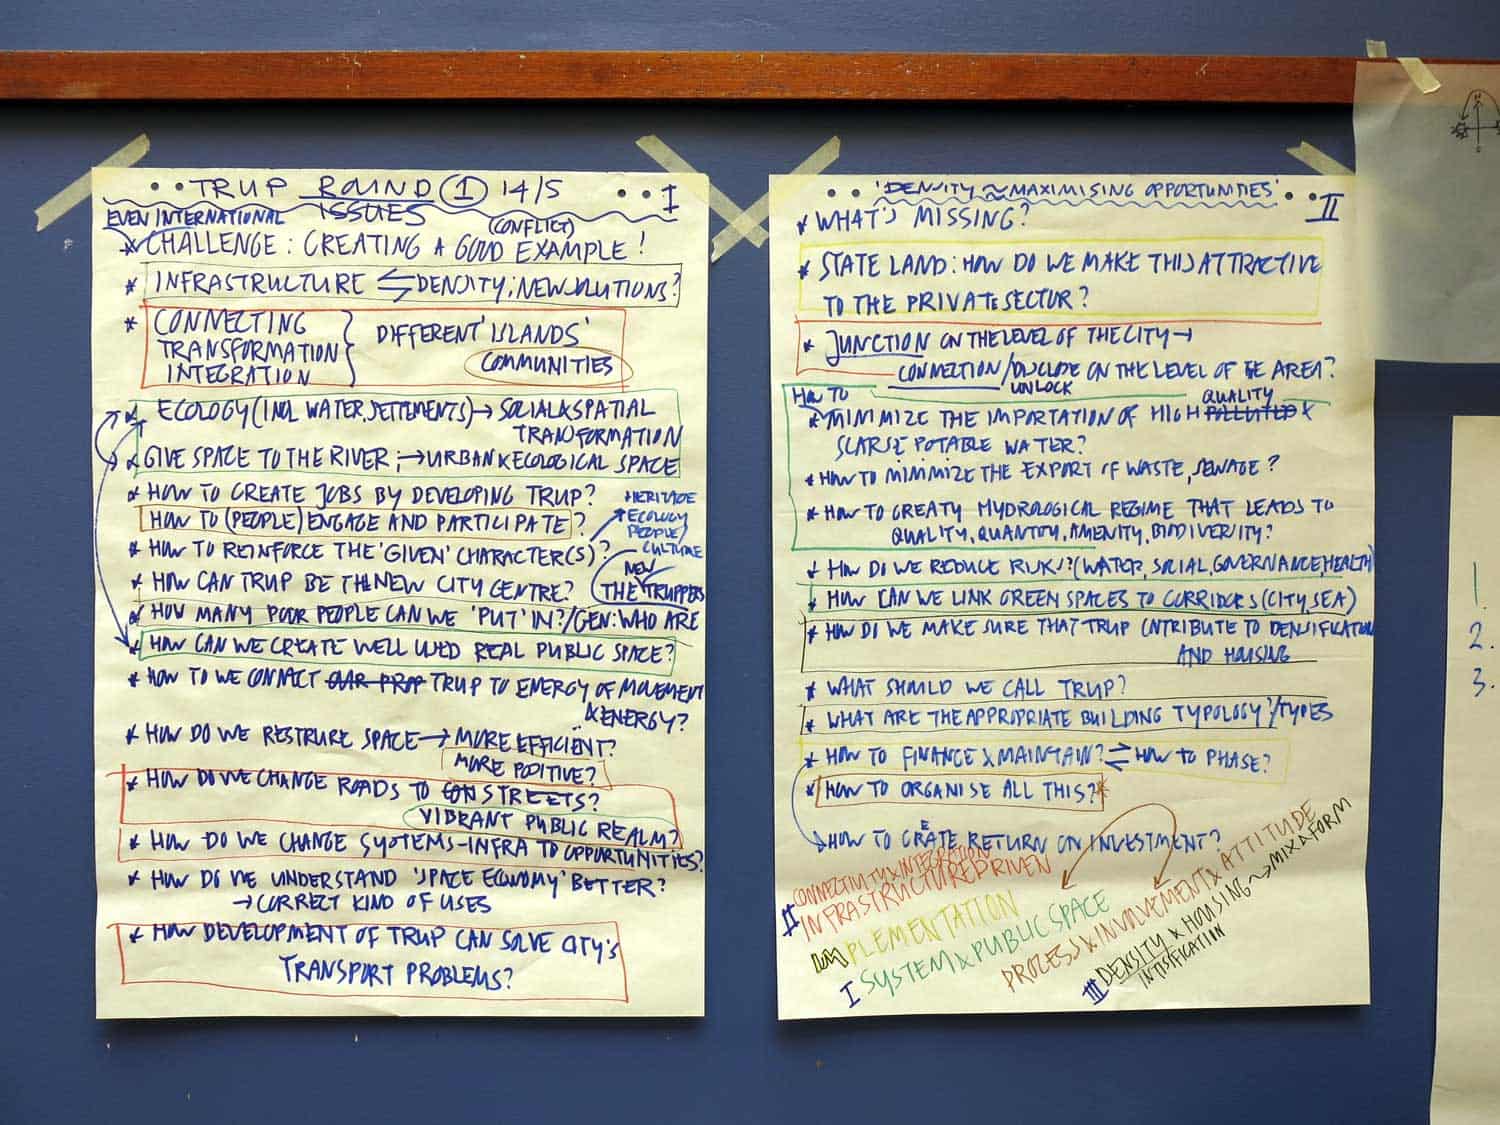 TRUP ROUND 1 14/5 I
EVEN INTERNATIONAL ISSUES
(CONFLICT)
* CHALLENGE: CREATING A GOOD EXAMPLE!
* INFRASTRUCTURE ⇆ DENSITY; NEW SOLUTIONS?
* CONNECTING
TRANSFORMATION
INTEGRATION
} DIFFERENT 'ISLANDS'
COMMUNITIES
* ECOLOGY (INCL WATER, SETTLEMENTS) → SOCIAL & SPATIAL
TRANSFORMATION
* GIVE SPACE TO THE RIVER; → URBAN & ECOLOGICAL SPACE
* HOW TO CREATE JOBS BY DEVELOPING TRUP?
HOW TO (PEOPLE) ENGAGE AND PARTICIPATE?
* HOW TO REINFORCE THE 'GIVEN' CHARACTER(S)?
HERITAGE
ECOLOGY
PEOPLE/
CULTURE
* HOW CAN TRUP BE THE NEW CITY CENTRE?
NEW
THE TRUPPERS
* HOW MANY POOR PEOPLE CAN WE 'PUT' IN?/GEN: WHO ARE
* HOW CAN WE CREATE WELL USED REAL PUBLIC SPACE?
* HOW TO WE CONNECT OUR PROP TRUP TO ENERGY OF MOVEMENT
& ENERGY?
* HOW DO WE RESTRURE SPACE → MORE EFFICIENT?
MORE POSITIVE?
* HOW DO WE CHANGE ROADS TO STREETS?
VIBRANT PUBLIC REALM?
* HOW DO WE CHANGE SYSTEMS-INFRA TO OPPORTUNITIES?
* HOW DO WE UNDERSTAND 'SPACE ECONOMY' BETTER?
→ CORRECT KIND OF USES
* HOW DEVELOPMENT OF TRUP CAN SOLVE CITY'S
TRANSPORT PROBLEMS?
'DENSITY ~ MAXIMISING OPPORTUNITIES' II
* WHAT'S MISSING?
* STATE LAND: HOW DO WE MAKE THIS ATTRACTIVE
TO THE PRIVATE SECTOR?
* JUNCTION ON THE LEVEL OF THE CITY →
CONNECTION/ ON THE LEVEL OF AREA?
UNLOCK
HOW TO
QUALITY
* MINIMIZE THE IMPORTATION OF HIGH POLLUTED &
SCARSE POTABLE WATER?
* HOW TO MIMIMIZE THE EXPORT OF WASTE, SEWAGE?
* HOW TO CREATY HYDROLOGICAL REGIME THAT LEADS TO
QUALITY, QUANTITY, AMENITY, BIODIVERITY?
* HOW DO WE REDUCE RISK? (WATER, SOCIAL, GOVERNANCE, HEALTH)
* HOW CAN WE LINK GREEN SPACES TO CORRIDORS (CITY, SEA)
* HOW DO WE MAKE SURE THAT TRUP CONTRIBUTE TO DENSIFICATION
AND HOUSING
* WHAT SHOULD WE CALL TRUP?
* WHAT ARE THE APPROPRIATE BUILDING TYPOLOGY?/TYPES
* HOW TO FINANCE & MAINTAIN? ⇌ HOW TO PHASE?
* HOW TO ORGANISE ALL THIS?*
HOW TO CREATE RETURN ON INVESTMENT?
II CONNECTIVITY & INTEGRATION
INFRASTRUCTURE DRIVEN
IMPLEMENTATION
I SYSTEM & PUBLIC SPACE
PROZESS & INVOLVEMENT & ATTITUDE
III DENSITY & HOUSING → MIX & FORM
INTISIFICATION
1.
2.
3.